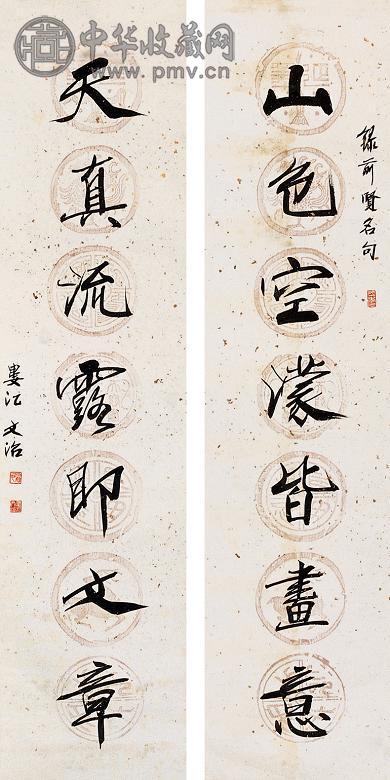 中华收藏网
www.pmv.cn
錄前賢名句
山色空濛皆畫意
天真流露即文章
婁江文治